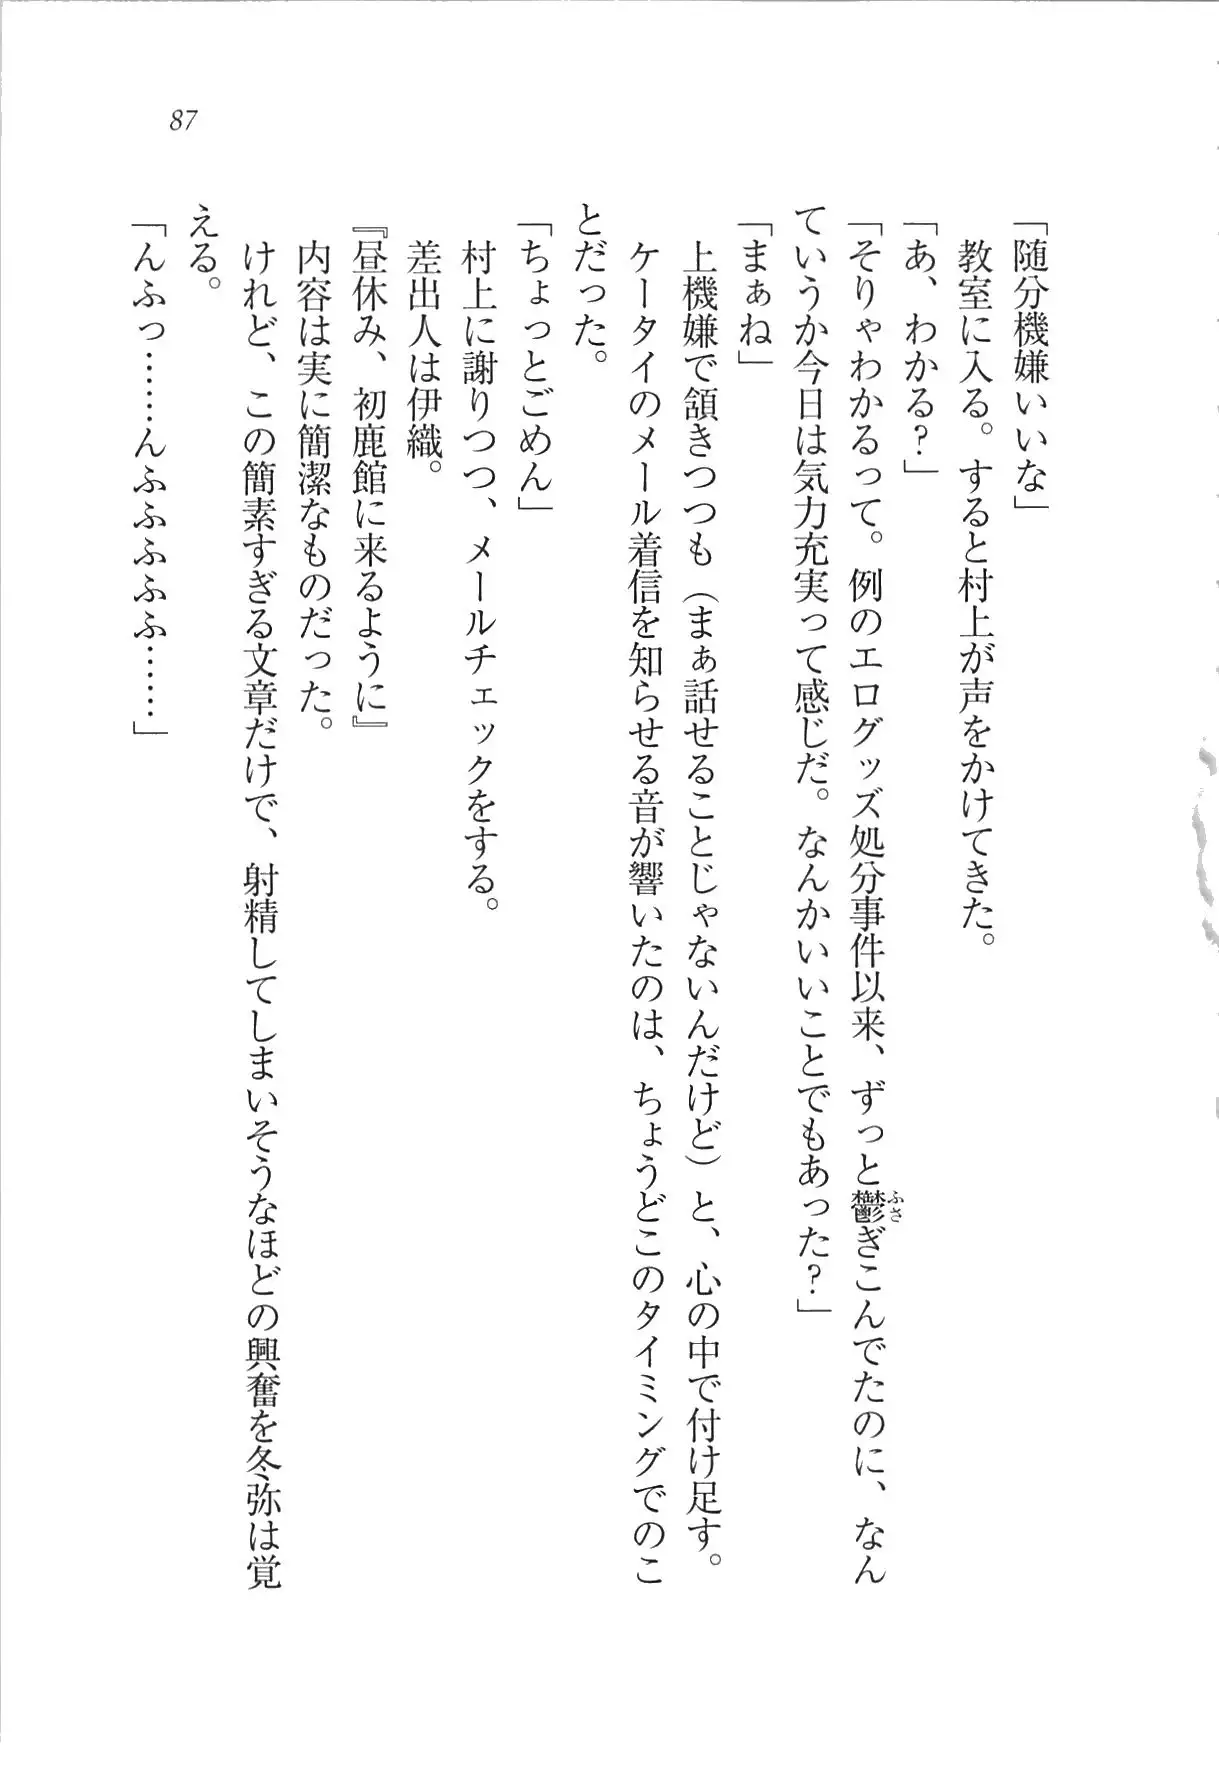 87
「随分機嫌いいな」
教室に入る。すると村上が声をかけてきた。
「あ、わかる?」
「そりゃわかるって。例のエログッズ処分事件以来、ずっと鬱ふさぎこんでたのに、なん
ていうか今日は気力充実って感じだ。なんかいいことでもあった?」
「まぁね」
上機嫌で頷きつつも（まぁ話せることじゃないんだけど）と、心の中で付け足す。
ケータイのメール着信を知らせる音が響いたのは、ちょうどこのタイミングでのこ
とだった。
「ちょっとごめん」
村上に謝りつつ、メールチェックをする。
差出人は伊織。
『昼休み、初鹿館に来るように』
内容は実に簡潔なものだった。
けれど、この簡素すぎる文章だけで、射精してしまいそうなほどの興奮を冬弥は覚
える。
「んふっ……んふふふふふ……」